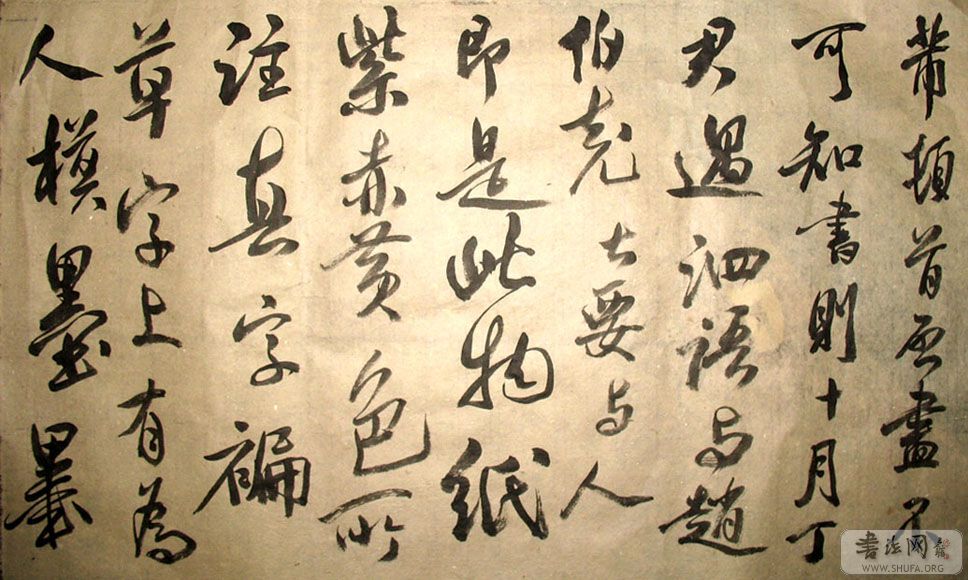 芾頓首再啓不
可知書則十月丁
君過泗語与趙
伯充云要与人
即是此物紙
紫赤黄色所
注真字褊
草字上有為
人模墨累
书法网
WWW.SHUFA.ORG